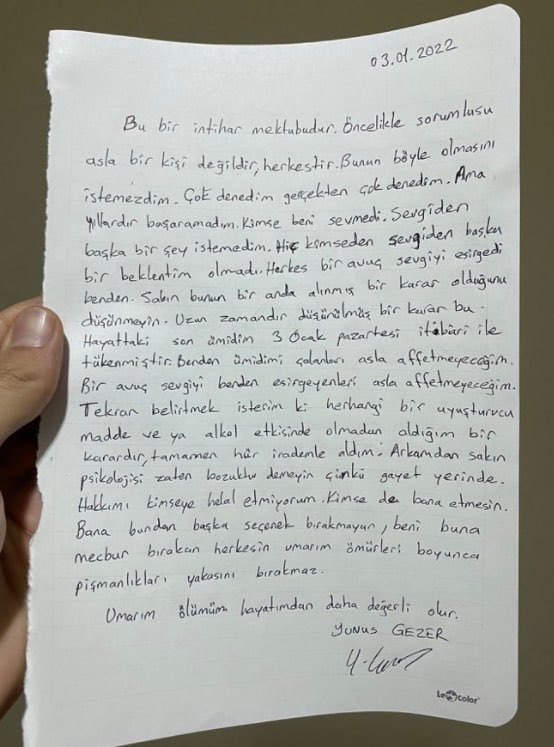 03.01.2022
Bu bir intihar mektubudur. Öncelikle sorumlusu
asla bir kişi değildir, herkestir. Bunun böyle olmasını
istemezdim. Çok denedim gerçekten çok denedim. Ama
yıllardır başaramadım. Kimse beni sevmedi. Sevgiden
başka bir şey istemedim. Hiç kimseden sevgiden başka
bir beklentim olmadı. Herkes bir avuç sevgiyi esirgedi
benden. Sakın bunun bir anda alınmış bir karar olduğunu
düşünmeyin. Uzun zamandır düşünülmüş bir karar bu.
Hayattaki son ümidim 3 Ocak pazartesi itibari ile
tükenmiştir. Benden ümidimi çalanları asla affetmeyeceğim.
Bir avuç sevgiyi benden esirgeyenleri asla affetmeyeceğim.
Tekrar belirtmek isterim ki herhangi bir uyuşturucu
madde ve ya alkol etkisinde olmadan aldığım bir
karardır, tamamen hür irademle aldım. Arkamdan sakın
psikolojisi zaten bozuktu demeyin çünkü gayet yerinde.
Hakkımı kimseye helal etmiyorum. Kimse de bana etmesin.
Bana bundan başka seçenek bırakmayan, beni buna
mecbur bırakan herkesin umarım ömürleri boyunca
pişmanlıkları yakasını bırakmaz.
Umarım ölümüm hayatımdan daha değerli olur.
YUNUS GEZER
LeColor